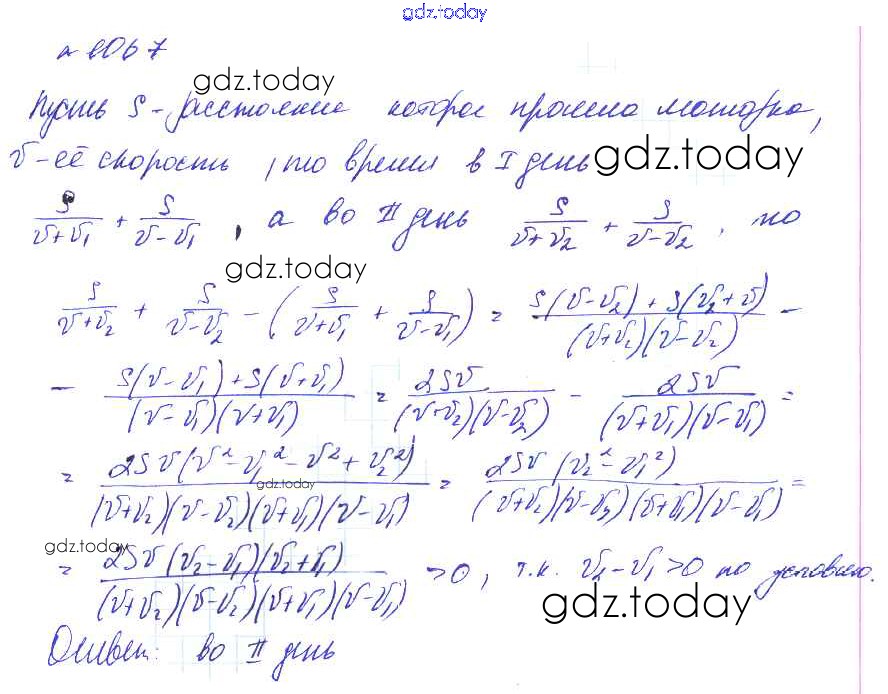 gdz.today
№ 1067
gdz.today
Пусть S - расстояние которое прошла моторка,
v - её скорость, то время в I день
gdz.today
S/(v+v₁) + S/(v-v₁), а во II день S/(v+v₂) + S/(v-v₂), то
gdz.today
S/(v+v₂) + S/(v-v₂) - (S/(v+v₁) + S/(v-v₁)) = (S(v-v₂)+S(v₂+v))/((v+v₂)(v-v₂)) -
- (S(v-v₁)+S(v+v₁))/((v-v₁)(v+v₁)) = 2Sv/((v+v₂)(v-v₂)) - 2Sv/((v+v₁)(v-v₁)) =
= 2Sv(v²-v₁²-v²+v₂²)/((v+v₂)(v-v₂)(v+v₁)(v-v₁)) = 2Sv(v₂²-v₁²)/((v+v₂)(v-v₂)(v+v₁)(v-v₁)) =
gdz.today
gdz.today
= 2Sv(v₂-v₁)(v₂+v₁)/((v+v₂)(v-v₂)(v+v₁)(v-v₁)) >0, т.к. v₂-v₁>0 по условию.
gdz.today
Ответ: во II день